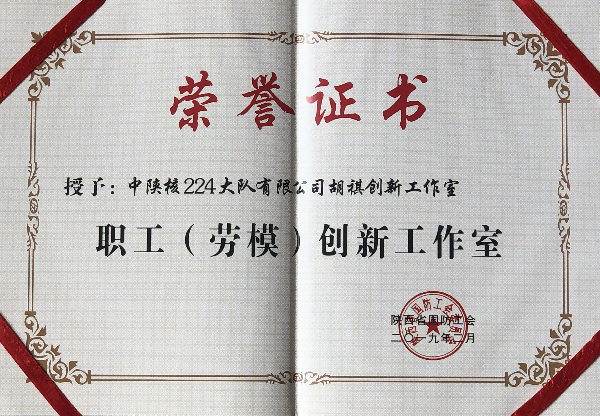 荣誉证书
授予：中陕核224大队有限公司胡祺创新工作室
职工（劳模）创新工作室
陕西省国防工会
二〇一九年二月